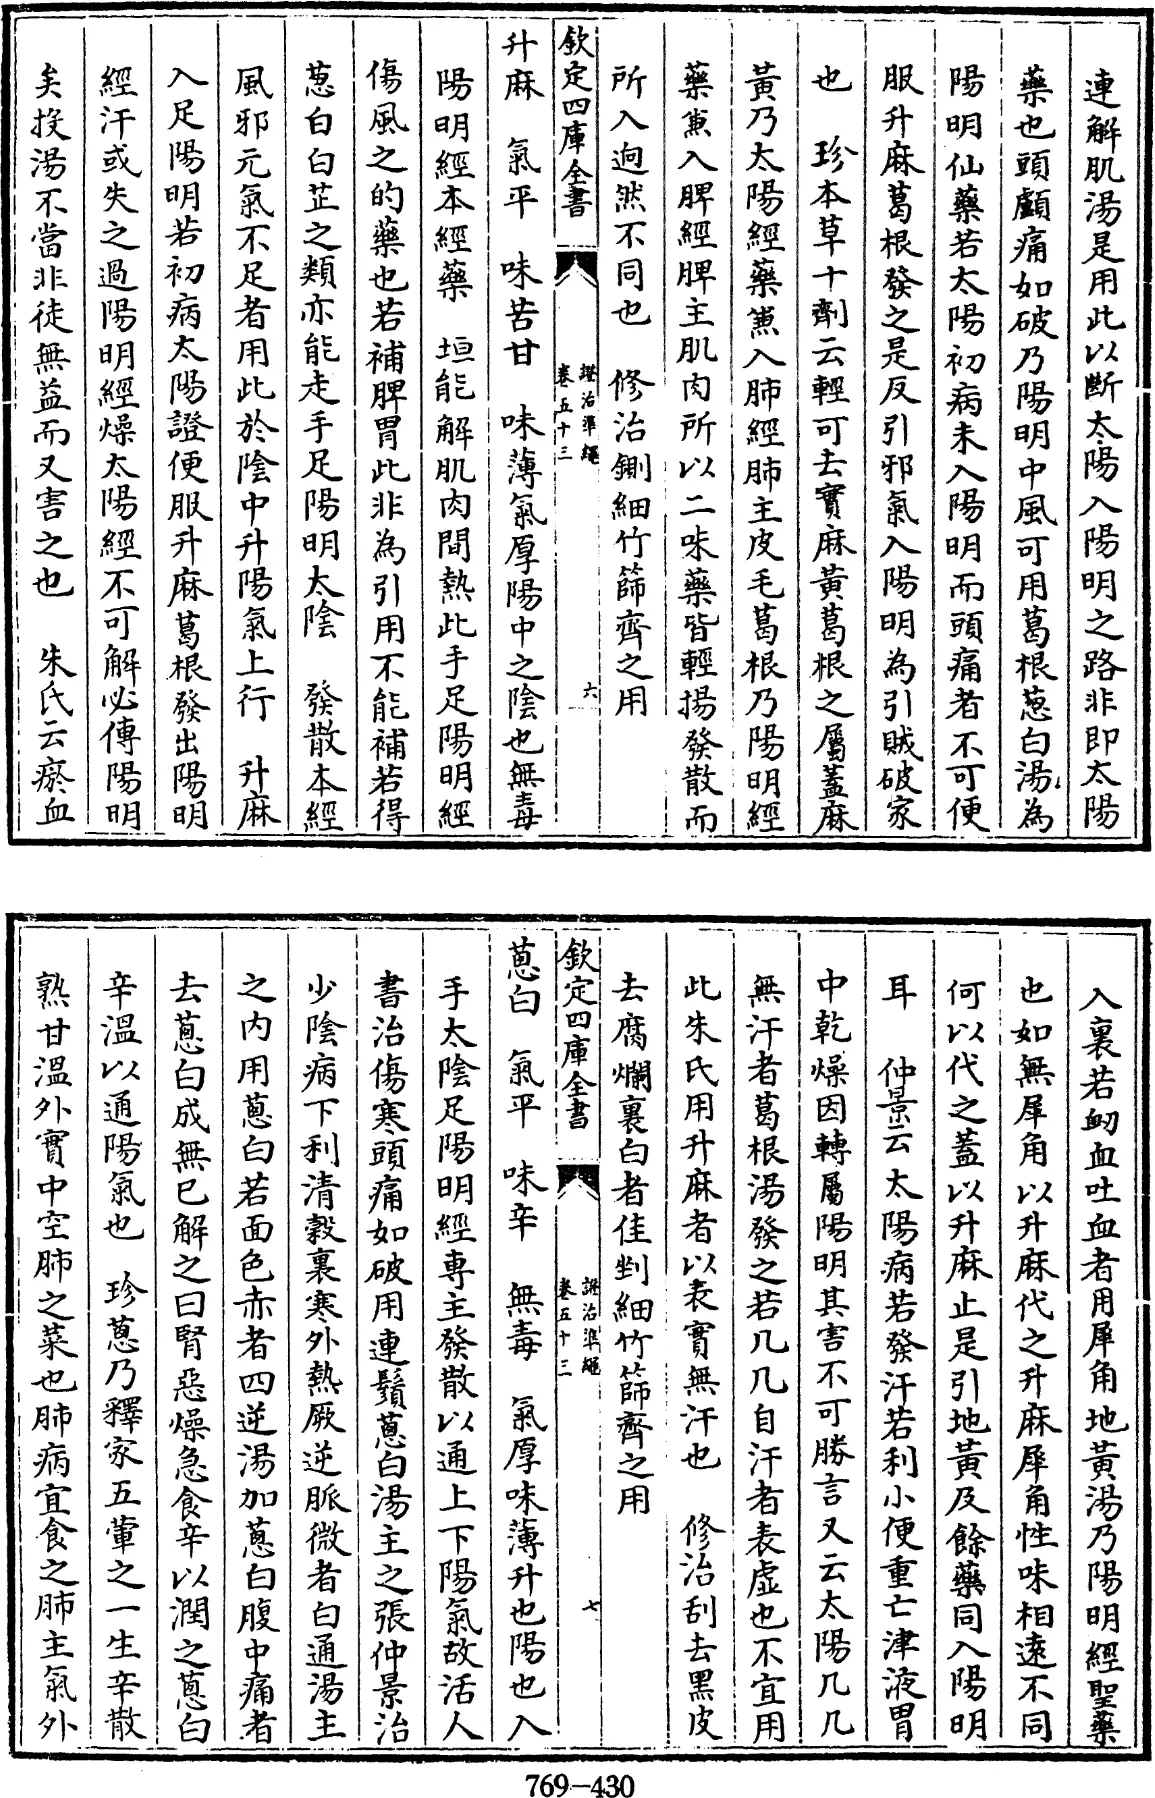 連解肌湯是用此以斷太陽入陽明之路非即太陽
藥也頭顱痛如破乃陽明中風可用葛根蔥白湯為
陽明仙藥若太陽初病未入陽明而頭痛者不可便
服升麻葛根發之是反引邪氣入陽明為引賊破家
也　珍本草十劑云輕可去實麻黃葛根之屬蓋麻
黃乃太陽經藥兼入肺經肺主皮毛葛根乃陽明經
藥兼入脾經脾主肌肉所以二味藥皆輕揚發散而
所入迥然不同也　修治鍘細竹篩齊之用
欽定四庫全書　證治準繩卷五十三　六
升麻　氣平　味苦甘　味薄氣厚陽中之陰也無毒
陽明經本經藥　垣能解肌肉間熱此手足陽明經
傷風之的藥也若補脾胃此非為引用不能補若得
蔥白白芷之類亦能走手足陽明太陰　發散本經
風邪元氣不足者用此於陰中升陽氣上行　升麻
入足陽明若初病太陽證便服升麻葛根發出陽明
經汗或失之過陽明經燥太陽經不可解必傳陽明
矣投湯不當非徒無益而又害之也　朱氏云瘀血
入裏若衂血吐血者用犀角地黃湯乃陽明經聖藥
也如無犀角以升麻代之升麻犀角性味相遠不同
何以代之蓋以升麻止是引地黃及餘藥同入陽明
耳　仲景云太陽病若發汗若利小便重亡津液胃
中乾燥因轉屬陽明其害不可勝言又云太陽几几
無汗者葛根湯發之若几几自汗者表虛也不宜用
此朱氏用升麻者以表實無汗也　修治刮去黑皮
去腐爛裏白者佳剉細竹篩齊之用
欽定四庫全書　證治準繩卷五十三　七
蔥白　氣平　味辛　無毒　氣厚味薄升也陽也入
手太陰足陽明經專主發散以通上下陽氣故活人
書治傷寒頭痛如破用連鬚蔥白湯主之張仲景治
少陰病下利清穀裏寒外熱厥逆脈微者白通湯主
之內用蔥白若面色赤者四逆湯加蔥白腹中痛者
去蔥白成無已解之曰腎惡燥急食辛以潤之蔥白
辛溫以通陽氣也　珍蔥乃釋家五葷之一生辛散
熟甘溫外實中空肺之菜也肺病宜食之肺主氣外
769-430